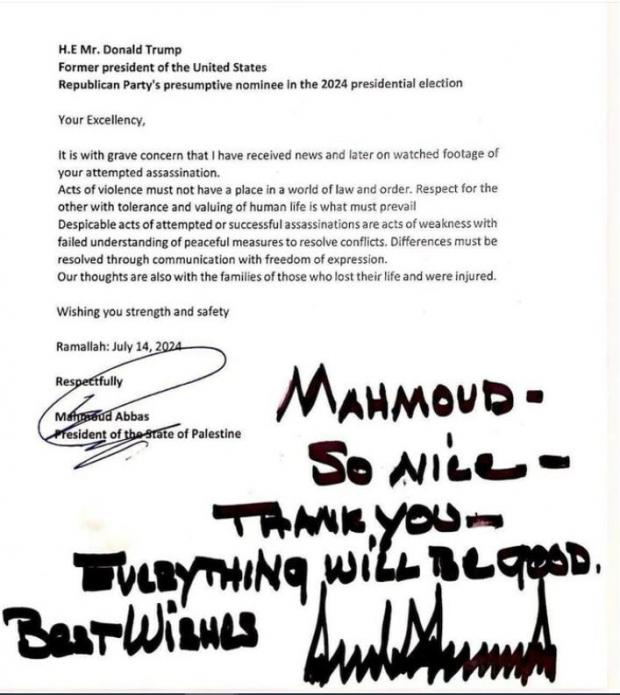 H.E Mr. Donald Trump
Former president of the United States
Republican Party's presumptive nominee in the 2024 presidential election
Your Excellency,
It is with grave concern that I have received news and later on watched footage of
your attempted assassination.
Acts of violence must not have a place in a world of law and order. Respect for the
other with tolerance and valuing of human life is what must prevail
Despicable acts of attempted or successful assassinations are acts of weakness with
failed understanding of peaceful measures to resolve conflicts. Differences must be
resolved through communication with freedom of expression.
Our thoughts are also with the families of those who lost their life and were injured.
Wishing you strength and safety
Ramallah: July 14, 2024
Respectfully
Mahmoud Abbas
President of the State of Palestine
MAHMOUD -
SO NICE -
THANK YOU -
EVERYTHING WILL BE GOOD.
BEST WISHES